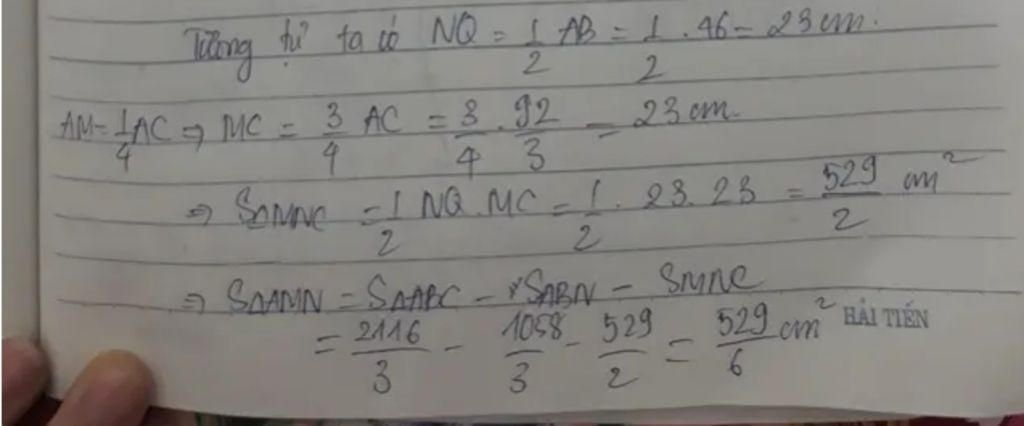 Tương tự ta có NQ = 1/2 AB = 1/2 . 46 = 23 cm.
AM = 1/4 AC ⇒ MC = 3/4 AC = 3/4 . 92/3 = 23 cm.
⇒ SΔMNC = 1/2 NQ.MC = 1/2 . 23.23 = 529/2 cm²
⇒ SΔAMN = SΔABC - SABN - SMNC
= 2116/3 - 1058/3 - 529/2 = 529/6 cm²
HẢI TIẾN